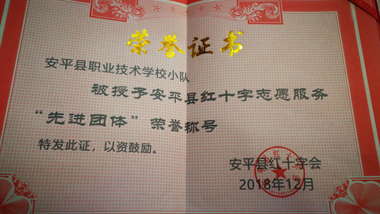 荣誉证书
安平县职业技术学校小队
被授予安平县红十字志愿服务
“先进团体”荣誉称号
特发此证，以资鼓励。
安平县红十字会
2018年12月